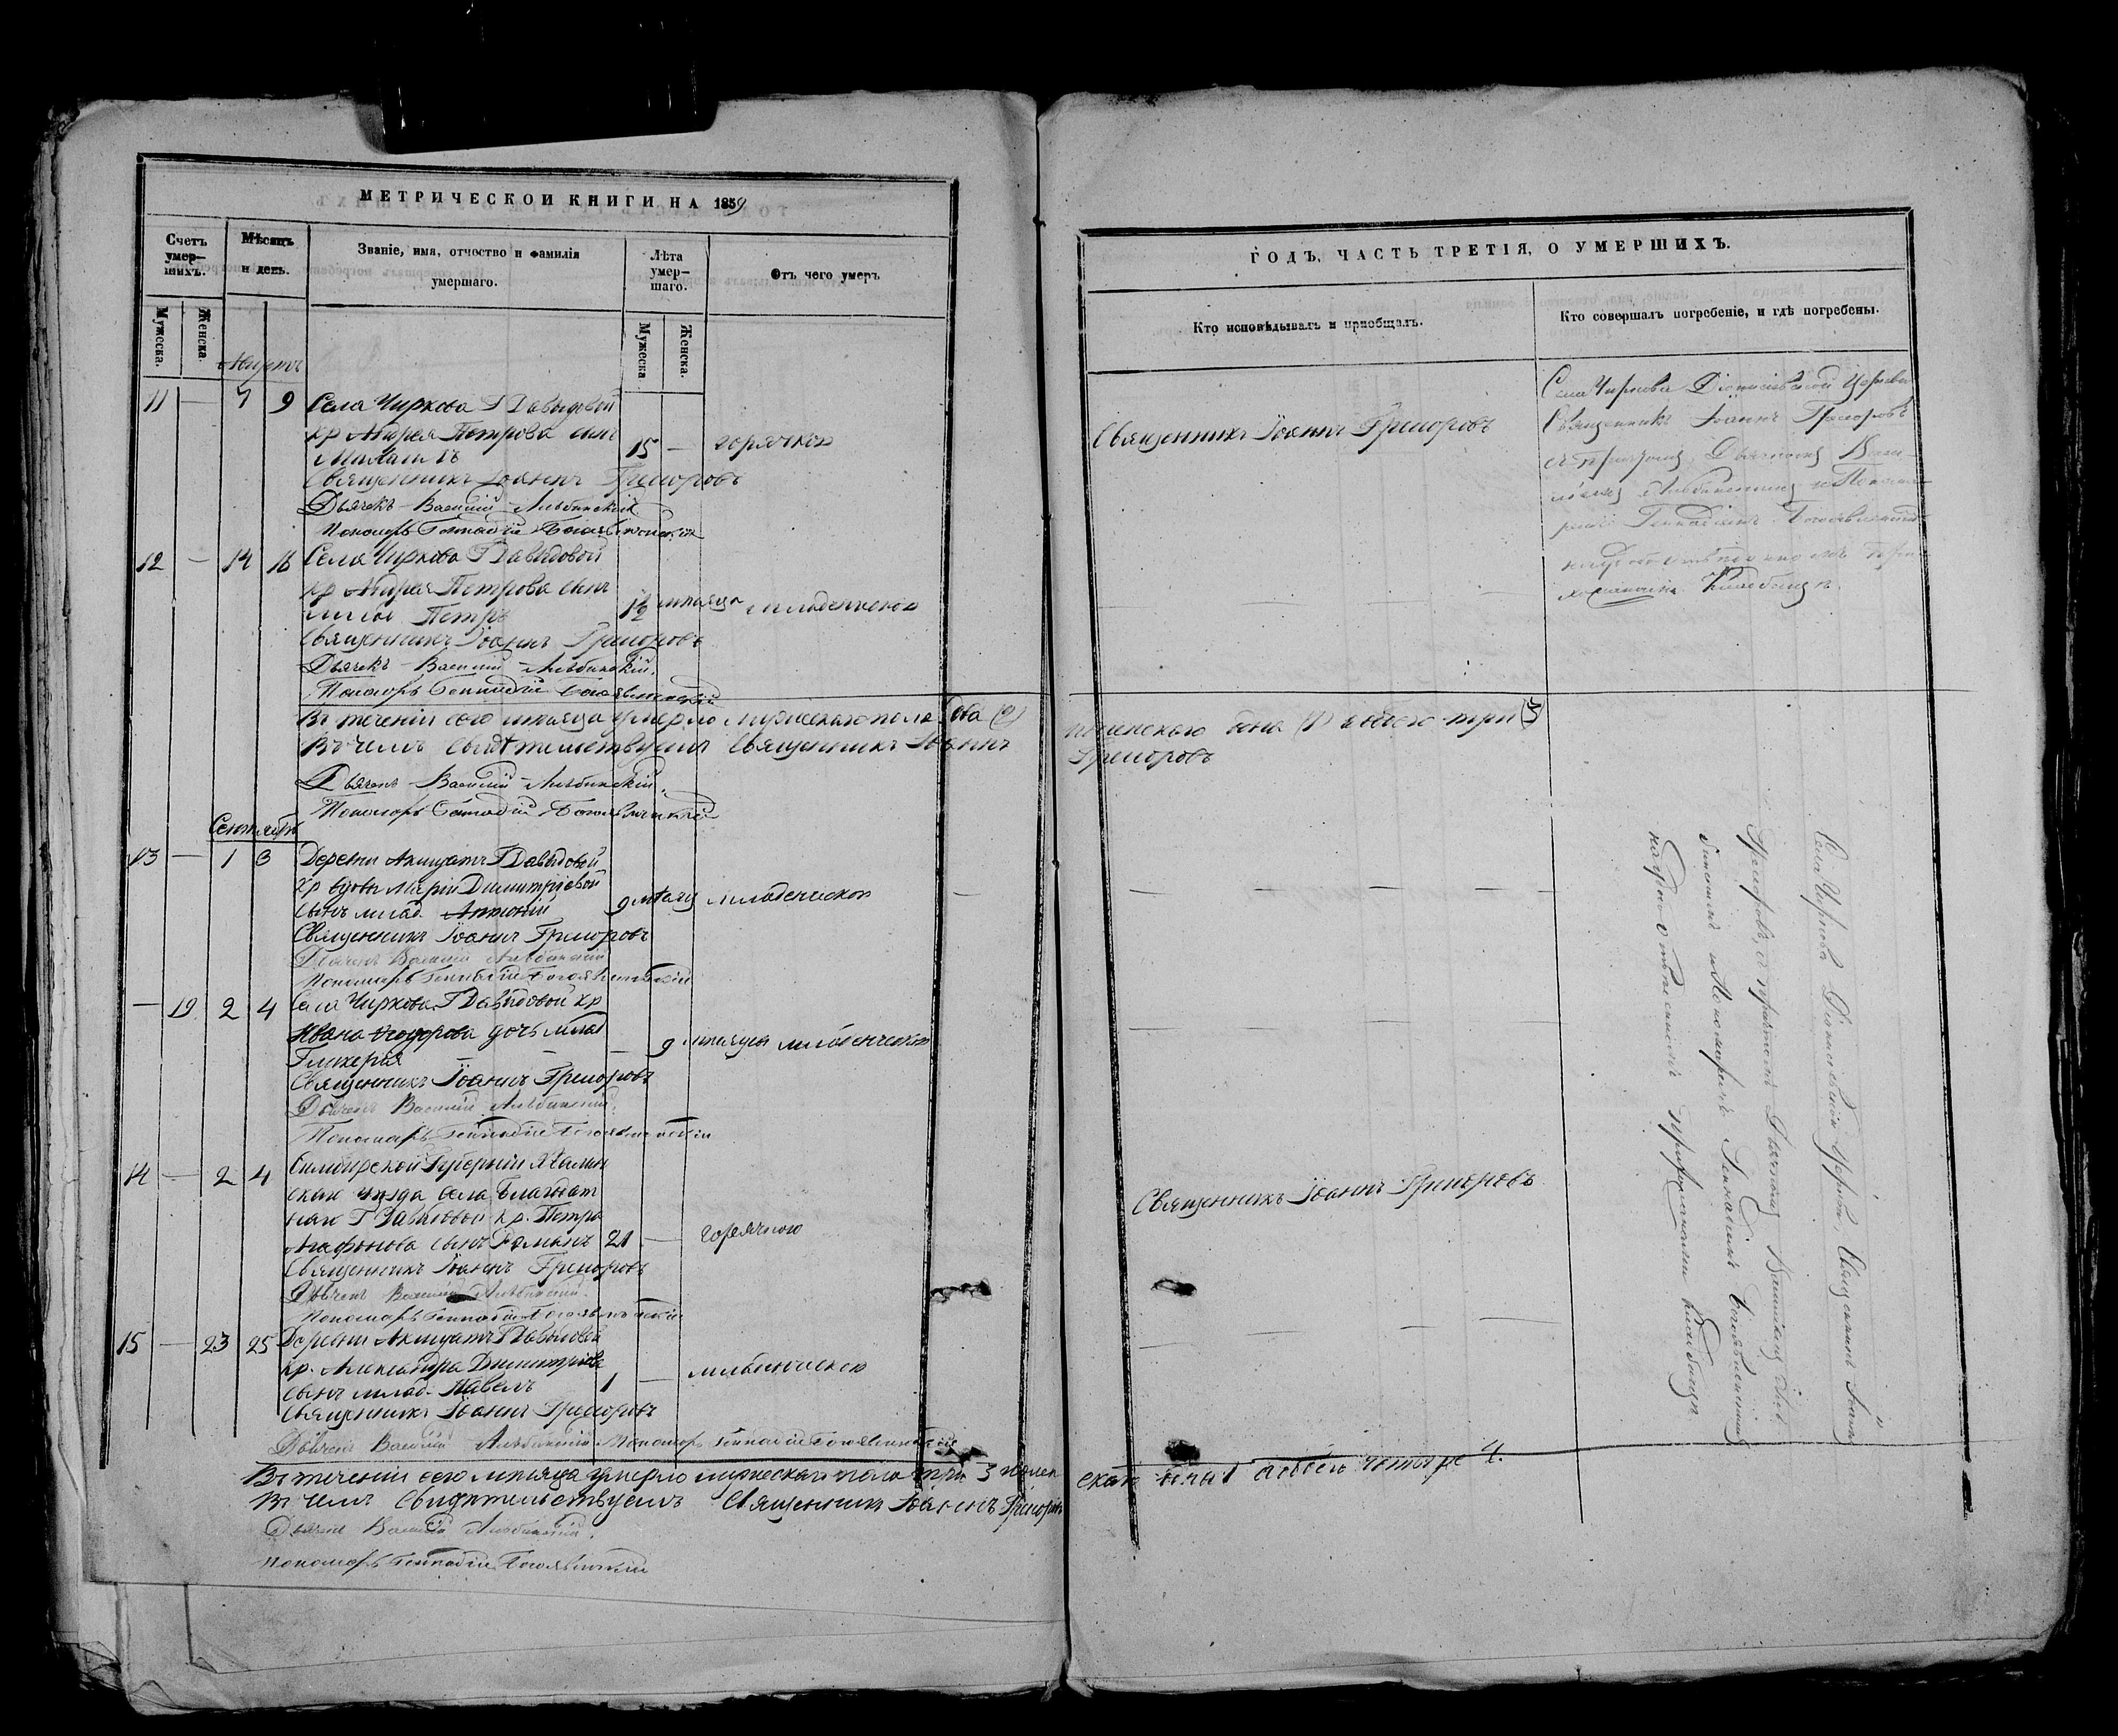 МЕТРИЧЕСКОЙ КНИГИ НА 1859
Счетъ умер-шихъ.
Мѣсяцъ и день.
Званіе, имя, отчество и фамилія умершаго.
Лѣта умер-шаго.
Отъ чего умеръ
Мужеска.
Женска.
Мужеска
Женска.
11 — 7 9 Села Чиркова Г Давыдовой
кр Андрея Петрова сынъ
15 — горячкою
Священникъ Іоаннъ Григоровъ
Дьячекъ Василій Альбинскій
Пономарь Геннадій Богоявленскій
12 — 14 16 Села Чиркова Г Давыдовой
кр Андрея Петрова сынъ
Петръ 1/2 мѣсяца младенческою
Священникъ Іоаннъ Григоровъ
Дьячекъ Василій Альбинскій
Пономарь Геннадій Богоявленскій
Въ теченіи сего мѣсяца умерло мужескаго пола два (2)
Въ чемъ свидѣтельствуемъ Священникъ Іоаннъ
Дьячекъ Василій Альбинскій
Пономарь Геннадій Богоявленскій
Сентябрь
13 — 1 3 Деревни Акшуатъ Г Давыдовой
кр вдовы Маріи Димитріевой
сынъ млад. Антоній 9 мѣсяц младенческою
Священникъ Іоаннъ Григоровъ
Дьячекъ Василій Альбинскій
Пономарь Геннадій Богоявленскій
— 19 2 4 Села Чиркова Г Давыдовой кр
Ивана Ѳеодорова дочь млад
Гликерія — 9 мѣсяцев младенческою
Священникъ Іоаннъ Григоровъ
Дьячекъ Василій Альбинскій
Пономарь Геннадій Богоявленскій
14 — 2 4 Симбирской Губерніи
скаго уѣзда села Благодат
наго Г Давыдовой кр. Петра
Агафонова сынъ Романъ 21 — горячкою
Священникъ Іоаннъ Григоровъ
Дьячекъ Василій Альбинскій
Пономарь Геннадій Богоявленскій
15 — 23 25 Деревни Акшуатъ Г Давыдовой
кр. Александра Димитріева
сынъ млад. Павелъ 1 — младенческою
Священникъ Іоаннъ Григоровъ
Дьячекъ Василій Альбинскій Пономарь Геннадій Богоявленскій
Въ теченіи сего мѣсяца умерло мужескаго пола три 3 женск
Въ чемъ свидѣтельствуемъ Священникъ Іоаннъ Григоровъ
Дьячекъ Василій Альбинскій
Пономарь Геннадій Богоявленскій
ГОДЪ, ЧАСТЬ ТРЕТІЯ, О УМЕРШИХЪ.
Кто исповѣдывалъ и пріобщалъ.
Кто совершалъ погребеніе, и гдѣ погребены.
Священникъ Іоаннъ Григоровъ
Села Чиркова Діонисіевской церкви
Священникъ Іоаннъ Григоровъ
съ причтомъ Дьячкомъ Васи-
ліемъ Альбинскимъ и Понома-
ремъ Геннадіемъ Богоявленскимъ
на
кладбищѣ.
и женскаго одна (1) а обоего три (3)
Григоровъ
Священникъ Іоаннъ Григоровъ
Села Чиркова Діонисіевской церкви Священникъ Іоаннъ
Григоровъ, съ причтомъ Дьячкомъ Василіемъ Аль-
бинскимъ и Пономаремъ Геннадіемъ Богоявленскимъ
на отведенномъ приходскомъ кладбищѣ
скаго одна 1 а обоего четыре 4.